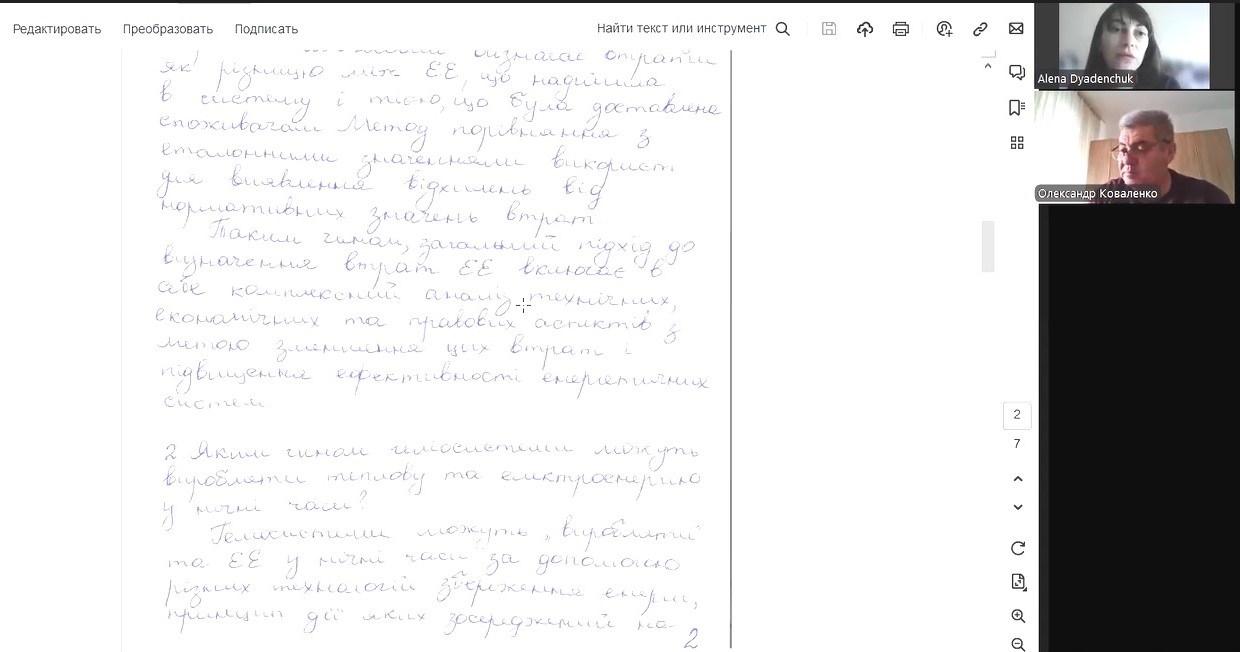 Редактировать Преобразовать Подписать Найти текст или инструмент
визначає втрати
як різницю між ЕЕ, що надійшла
в систему і тією, що була доставлена
споживачам Метод порівняння з
еталонними значеннями використ
для виявлення відхилень від
нормативних значень втрат
Таким чином, загальний підхід до
визначення втрат ЕЕ включає в
себе комплексний аналіз технічних,
економічних та правових аспектів з
метою зменшення цих втрат і
підвищення ефективності енергетичних
систем
2 Яким чином геліосистеми можуть
виробляти теплову та електроенергію
у нічні часи?
Геліосистеми можуть „виробляти"
та ЕЕ у нічні часи за допомогою
різних технологій збереження енергії,
принцип дії яких зосереджений на
2
Alena Dyadenchuk
Олександр Коваленко
2
7